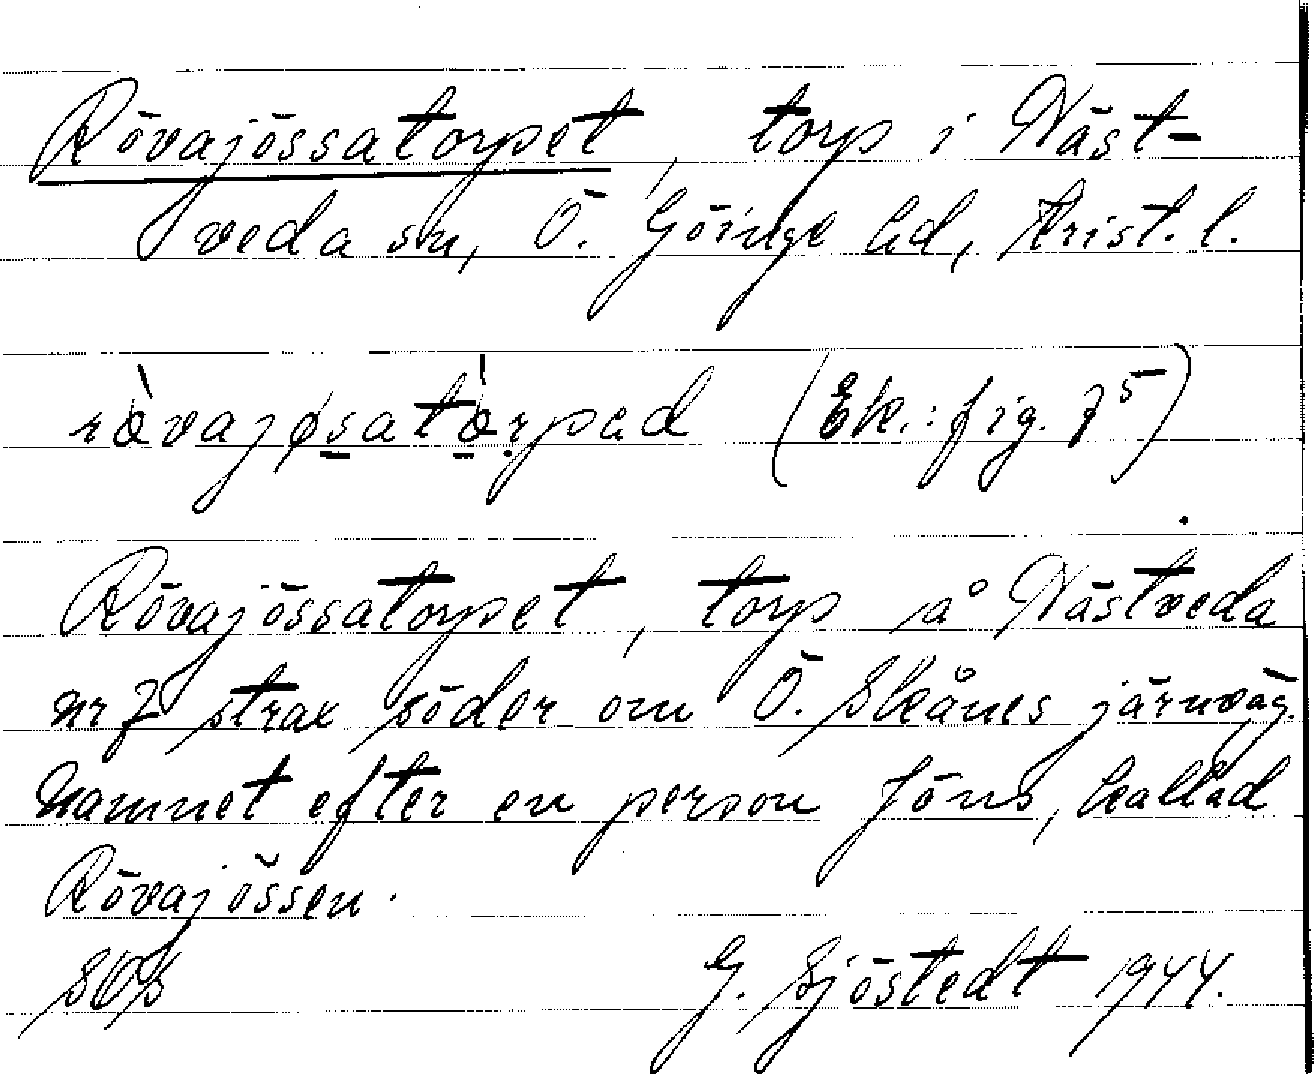 Rövajössatorpet, torp i Näst-
veda sn, Ö. Göinge hd, Krist. l.
rò̤vajøsatò̤rpad (Ek.: fig. 7⁵)
Rövajössatorpet, torp på Nästveda
nr 7 strax söder om Ö. Skånes järnväg.
Namnet efter en person Jöns, kallad
Rövajössen.
G. Sjöstedt 1944.